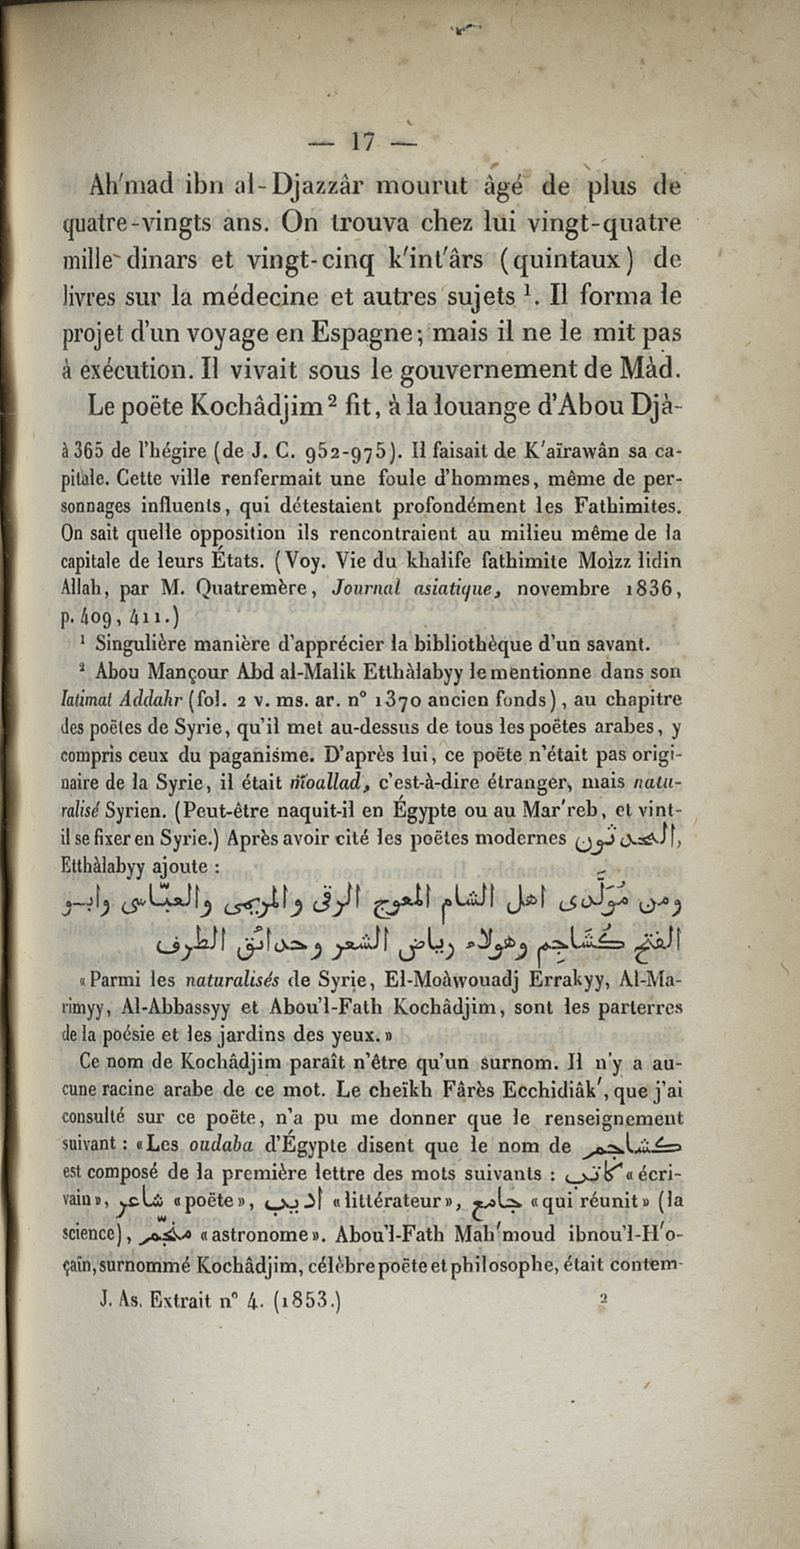 — 17 —
Ah'mad ibn al-Djazzâr mourut âgé de plus de
quatre-vingts ans. On trouva chez lui vingt-quatre
mille dinars et vingt-cinq k'int'ârs (quintaux) de
livres sur la médecine et autres sujets ¹. Il forma le
projet d'un voyage en Espagne; mais il ne le mit pas
à exécution. Il vivait sous le gouvernement de Màd.
Le poëte Kochâdjim ² fit, à la louange d'Abou Djà-
à 365 de l'hégire (de J. C. 952-975). Il faisait de K'aïrawân sa ca-
pitale. Cette ville renfermait une foule d'hommes, même de per-
sonnages influents, qui détestaient profondément les Fathimites.
On sait quelle opposition ils rencontraient au milieu même de la
capitale de leurs États. (Voy. Vie du khalife fathimite Moìzz lidin
Allah, par M. Quatremère, Journal asiatique, novembre 1836,
p. 409, 411.)
¹ Singulière manière d'apprécier la bibliothèque d'un savant.
² Abou Mançour Abd al-Malik Etthàlabyy le mentionne dans son
Iatimat Addahr (fol. 2 v. ms. ar. n° 1370 ancien fonds), au chapitre
des poëtes de Syrie, qu'il met au-dessus de tous les poëtes arabes, y
compris ceux du paganisme. D'après lui, ce poëte n'était pas origi-
naire de la Syrie, il était moallad, c'est-à-dire étranger, mais natu-
ralisé Syrien. (Peut-être naquit-il en Égypte ou au Mar'reb, et vint-
il se fixer en Syrie.) Après avoir cité les poëtes modernes المحدثون,
Etthàlabyy ajoute :
ومن مولدى اهل الشام المعوج الرقى والمريمى والعباسى وابو
الفتح كشاجم وهولاء رياض الشعر وحدائق الطرف
«Parmi les naturalisés de Syrie, El-Moàwouadj Errakyy, Al-Ma-
rimyy, Al-Abbassyy et Abou'l-Fath Kochâdjim, sont les parterres
de la poésie et les jardins des yeux.»
Ce nom de Kochâdjim paraît n'être qu'un surnom. Il n'y a au-
cune racine arabe de ce mot. Le cheïkh Fârès Ecchidiâk', que j'ai
consulté sur ce poëte, n'a pu me donner que le renseignement
suivant : «Les oudaba d'Égypte disent que le nom de كشاجم
est composé de la première lettre des mots suivants : كاتب «écri-
vain», شاعر «poëte», اديب «littérateur», جامع «qui réunit» (la
science), منجم «astronome». Abou'l-Fath Mah'moud ibnou'l-H'o-
çaïn, surnommé Kochâdjim, célèbre poëte et philosophe, était contem-
J. As. Extrait n° 4. (1853.) 2